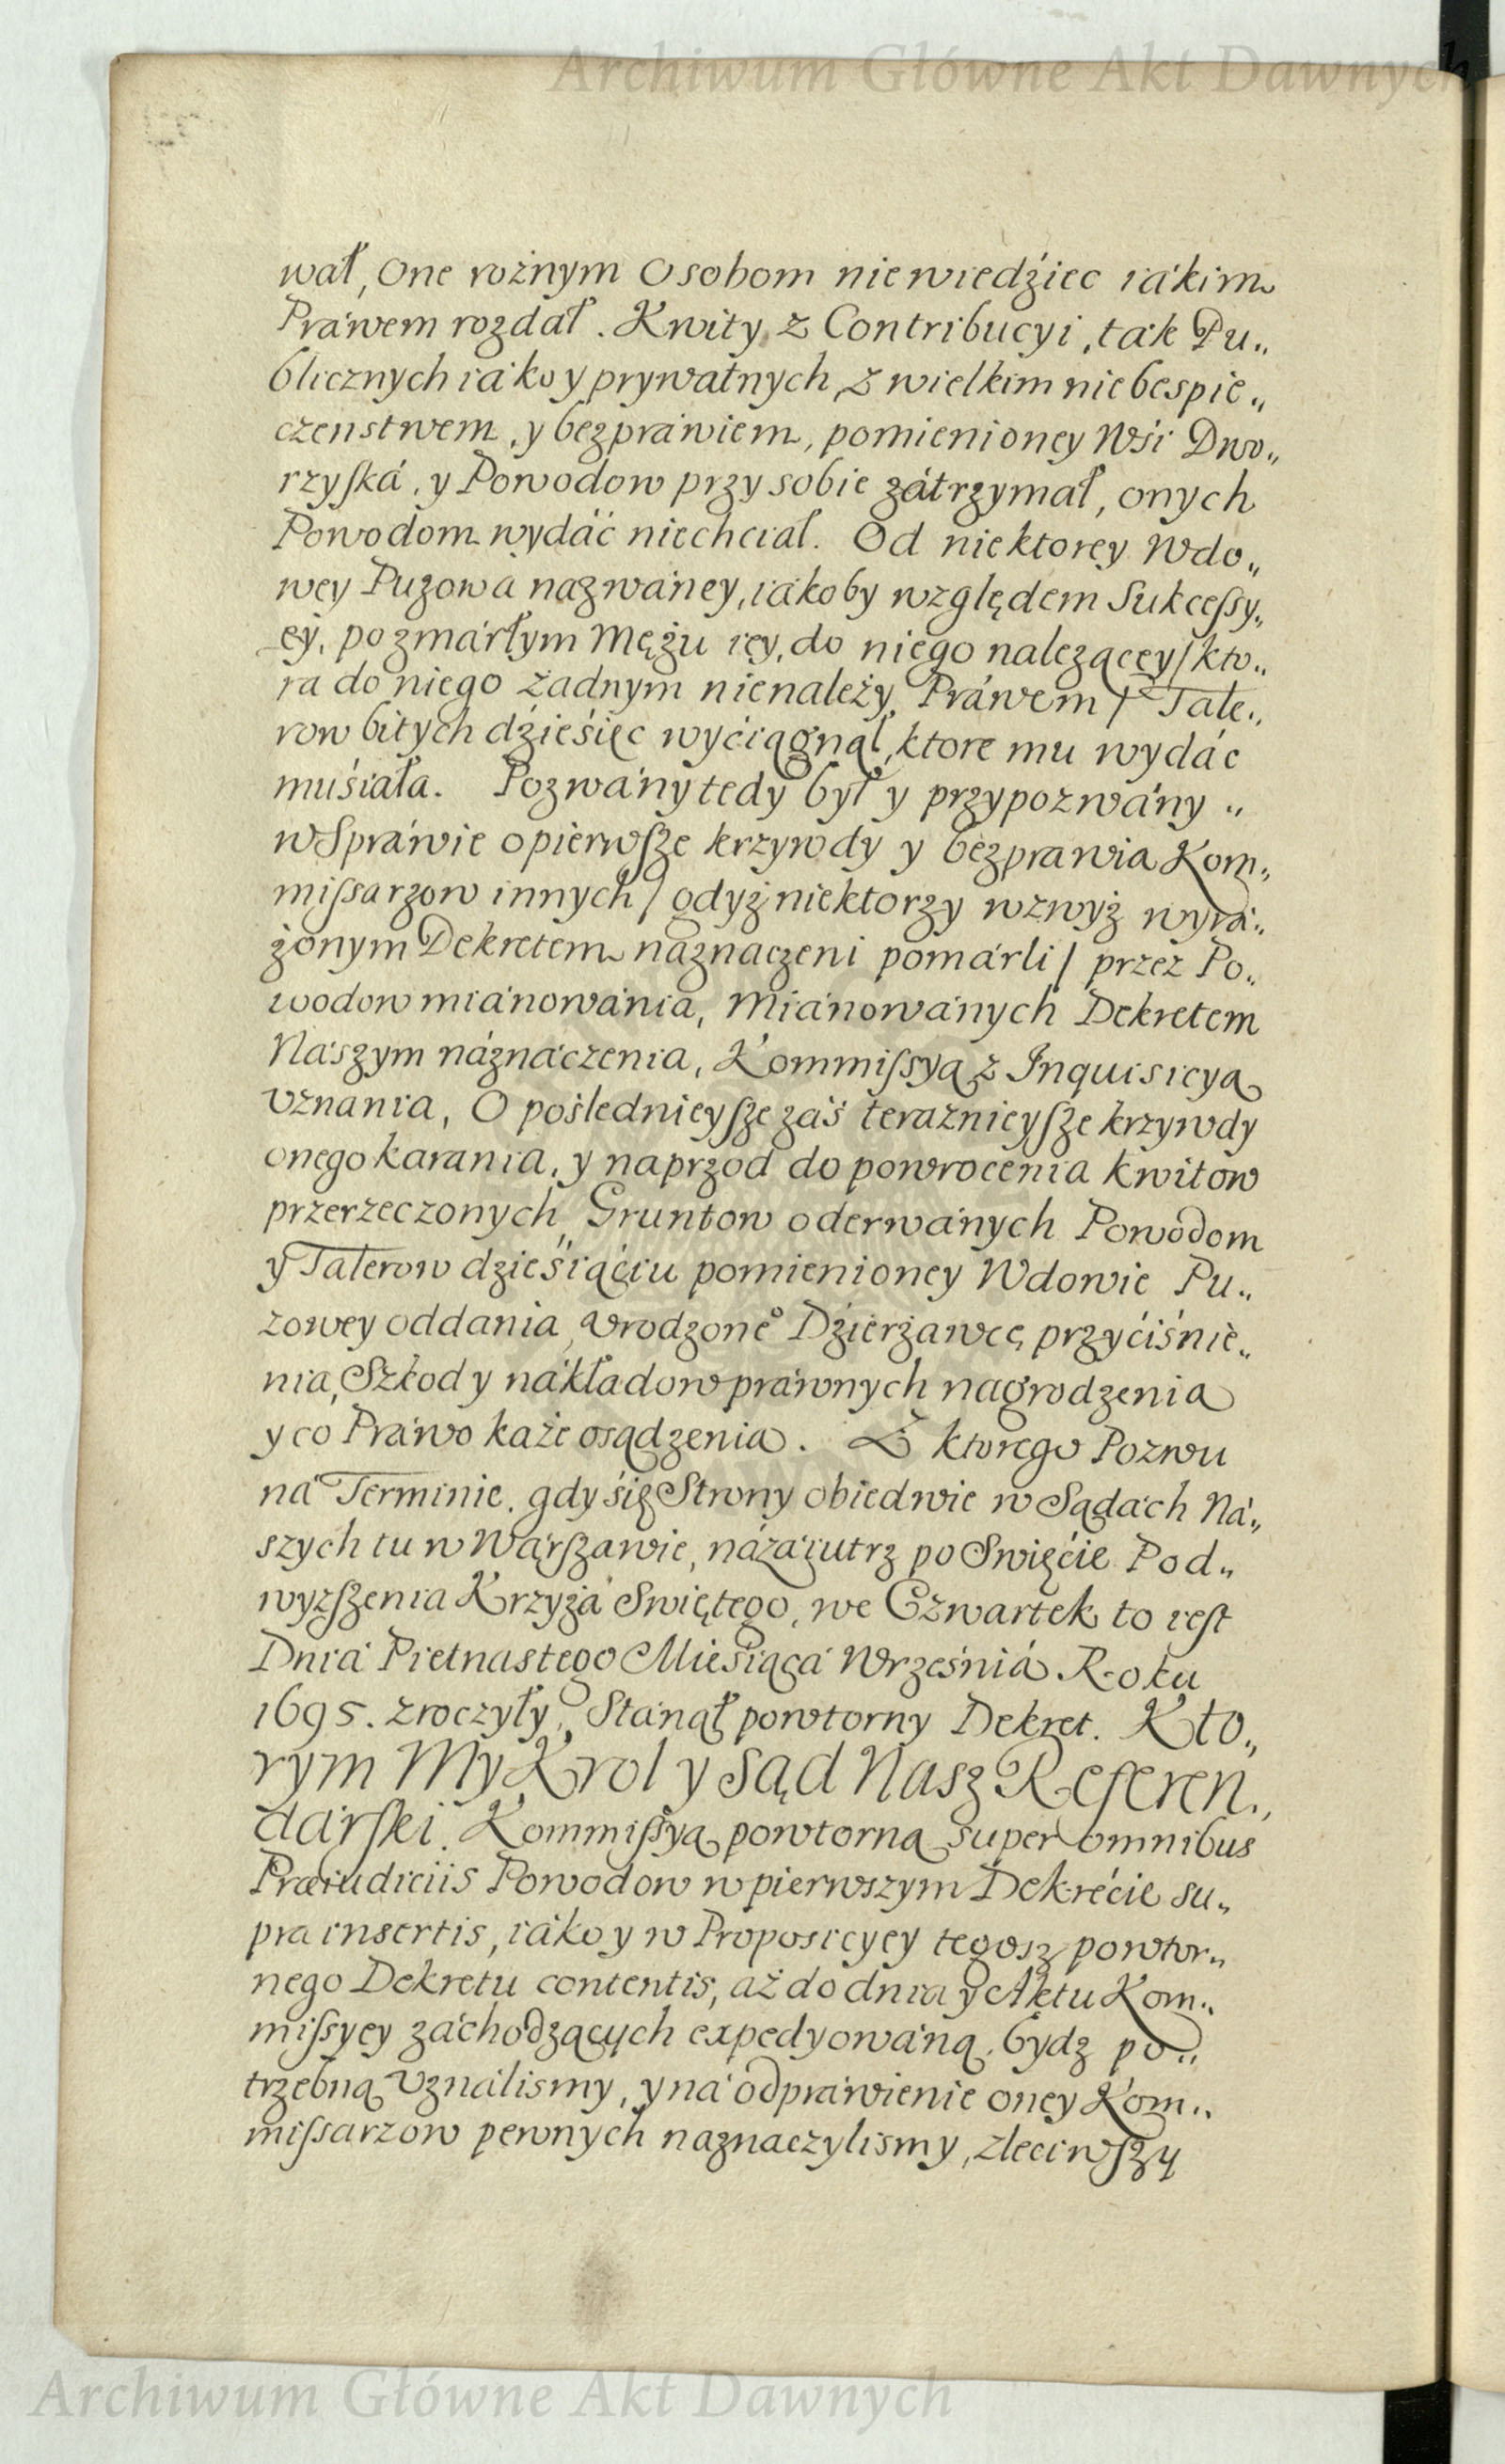 Archiwum Główne Akt Dawnych
wał, one rożnym Osobom niewiedźiec iákim
Práwem rozdał. Kwity z Contribucyi, ták Pu„
blicznych iáko y prywatnych, z wielkim niebespie„
czenstwem, y bezpráwiem, pomienioney Wśi Dwo„
rzyſká, y Powodow przy sobie zátrzymał, onych
Powodom wydáć niechciał. Od niektorey Wdo„
wey Puzowa názwáney, iákoby względem Sukceſsy„
ey, po zmárłym Mężu iey, do niego nalezącey / kto„
ra do niego żadnym nienależy Práwem / Tale„
row bitych dźieśięc wyćiągnął, ktore mu wydác
muśiáła. Pozwány tedy był y przypozwány „
w Spráwie o pierwſze krzywdy y bezprawia Kom„
miſsarzow innych / gdyż niektorzy wzwyż wyrá„
żonym Dekretem náznaczeni pomárli / przez Po„
wodow miánowánia, Miánowánych Dekretem
Nászym náznáczenia, Kommiſsyą z Inquisicyą
Uznania, O pośledniеyſze záś teraznieyſze krzywdy
onego karania, y naprzod do powrocenia kwitow
przerzeczonych, Gruntow oderwánych Powodom
y Talerow dzieśiąćiu pomienioney Wdowie Pu„
zowey oddania, Urodzoneº Dźierżawcę przyćiśnie„
nia, Szkod y nákładow práwnych nagrodzenia
y co Práwo każe osądzenia. Z ktorego Pozwu
ná Terminie, gdy śię Strony obiedwie w Sądách Ná„
szych tu w Wárſzawie, názáiutrz po Swięćie Pod„
wyzſzenia Krzyżá Swiętego, we Czwartek to ieſt
Dniá Pietnastego Mieśiącá Wrześniá Roku
1695. zroczyły, Stánął powtorny Dekret. Kto„
rym My Krol y Sąd Nasz Referen„
dárſki. Kommiſsyą powtorną super omnibus
Præiudiciis Powodow w pierwszym Dekrećie su„
pra insertis, iáko y w Proposicyey tegosz powtor„
nego Dekretu contentis, aż do dnia y Aktu Kom„
miſsyey záchodzących expedyowáną, bydz po„
trzebną Uználismy, y ná odpráwienie oney Kom„
miſsarzow pewnych naznaczylismy, zleciwſzy
Archiwum Główne Akt Dawnych